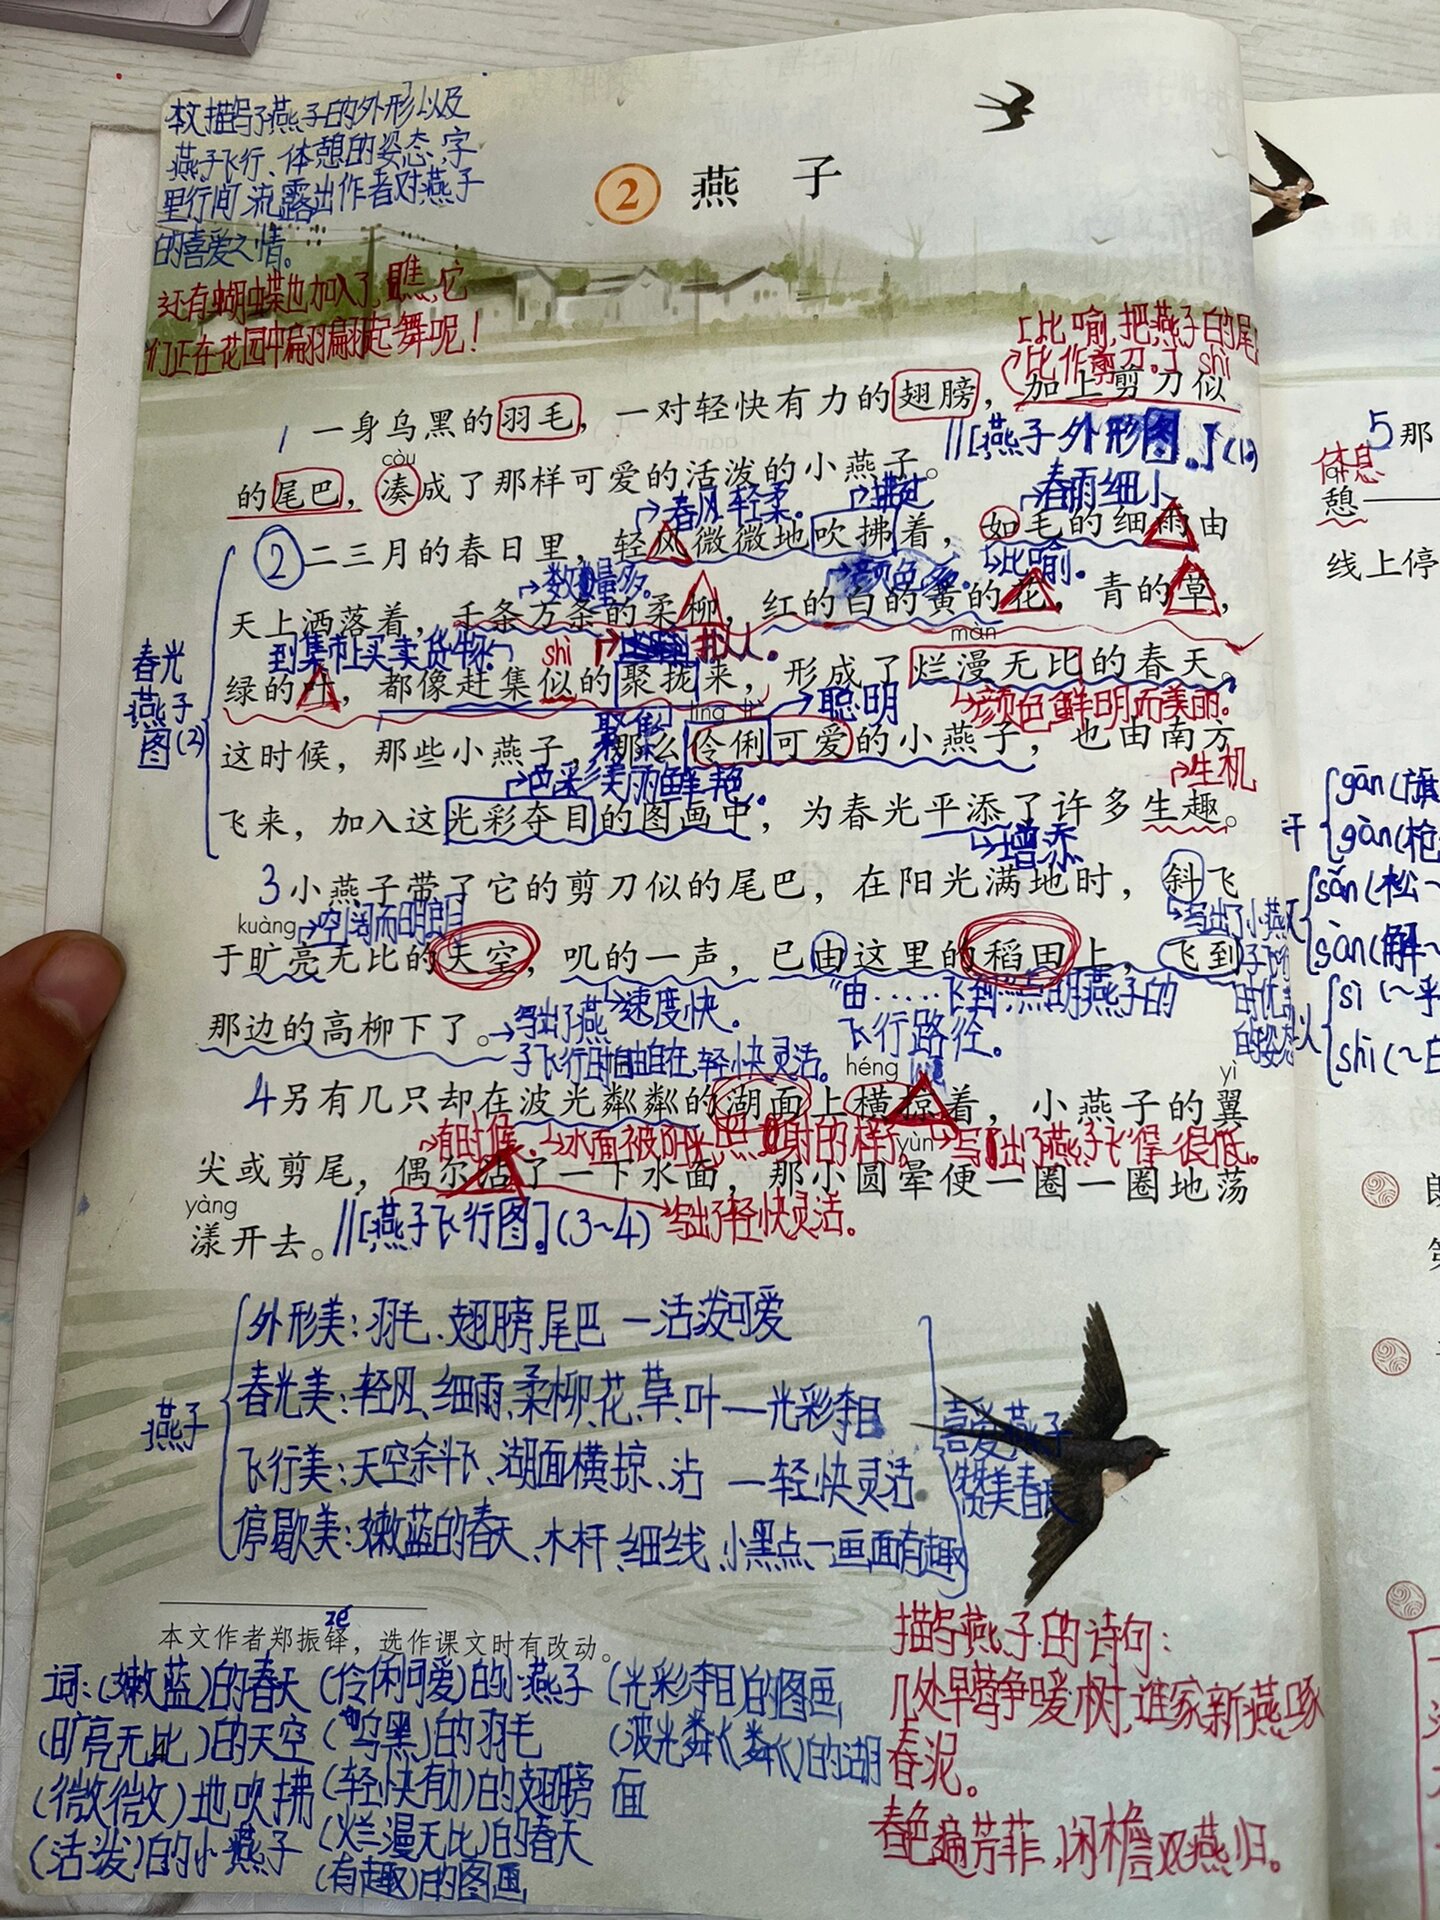 本文描写了燕子的外形以及
燕子飞行、休憩的姿态,字
里行间流露出作者对燕子
的喜爱之情。
还有蝴蝶也加入了,瞧,它
们正在花园中翩翩起舞呢!
② 燕子
[比喻,把燕子的尾
比作剪刀。] shì
1 一身乌黑的羽毛，一对轻快有力的翅膀，加上剪刀似
còu
//[燕子外形图。](1)
的尾巴，凑成了那样可爱的活泼的小燕子。
春风轻柔。 拂过 春雨细小
②二三月的春日里，轻风微微地吹拂着，如毛的细雨由
数量多。 颜色多。 比喻。
天上洒落着，千条万条的柔柳，红的白的黄的花，青的草，
到集市上买卖货物。 shì 拟人。 màn
绿的叶，都像赶集似的聚拢来，形成了烂漫无比的春天。
春光
燕子
图(2)
聚集 líng lì 聪明 颜色鲜明而美丽。
这时候，那些小燕子，那么伶俐可爱的小燕子，也由南方
色彩美丽鲜艳。 生机
飞来，加入这光彩夺目的图画中，为春光平添了许多生趣。
增添
3 小燕子带了它的剪刀似的尾巴，在阳光满地时，斜飞
kuàng 空阔而明朗
于旷亮无比的天空，叽的一声，已由这里的稻田上，飞到
写出了小燕
子飞行
时优美
的姿态
那边的高柳下了。
速度快。
写出了燕
子飞行时自由自在,轻快灵活。
“由……飞到”点明燕子的
飞行路径。
héng yì
4 另有几只却在波光粼粼的湖面上横掠着，小燕子的翼
有时候。 水面被阳光照射的样子。 yùn 写出了燕子飞得很低。
尖或剪尾，偶尔沾了一下水面，那小圆晕便一圈一圈地荡
yàng
漾开去。//[燕子飞行图。](3~4) 写出了轻快灵活。
燕子
外形美:羽毛、翅膀尾巴—活泼可爱
春光美:轻风、细雨、柔柳、花、草、叶—光彩夺目
飞行美:天空斜飞、湖面横掠、沾—轻快灵活
停歇美:嫩蓝的春天、木杆、细线、小黑点—画面有趣
喜爱燕子
赞美春天
zé
本文作者郑振铎，选作课文时有改动。
词:(嫩蓝)的春天 (伶俐可爱)的小燕子 (光彩夺目)的图画
(旷亮无比)的天空 (乌黑)的羽毛 (波光粼粼)的湖
面
(微微)地吹拂 (轻快有力)的翅膀
(活泼)的小燕子 (烂漫无比)的春天
(有趣)的图画
描写燕子的诗句:
几处早莺争暖树,谁家新燕啄
春泥。
春色遍芳菲,闲檐双燕归。
5 那
休息
憩
线上停
gān(旗
gǎn(枪
sǎn(松~
sàn(解~
sì(~乎
shì(~白